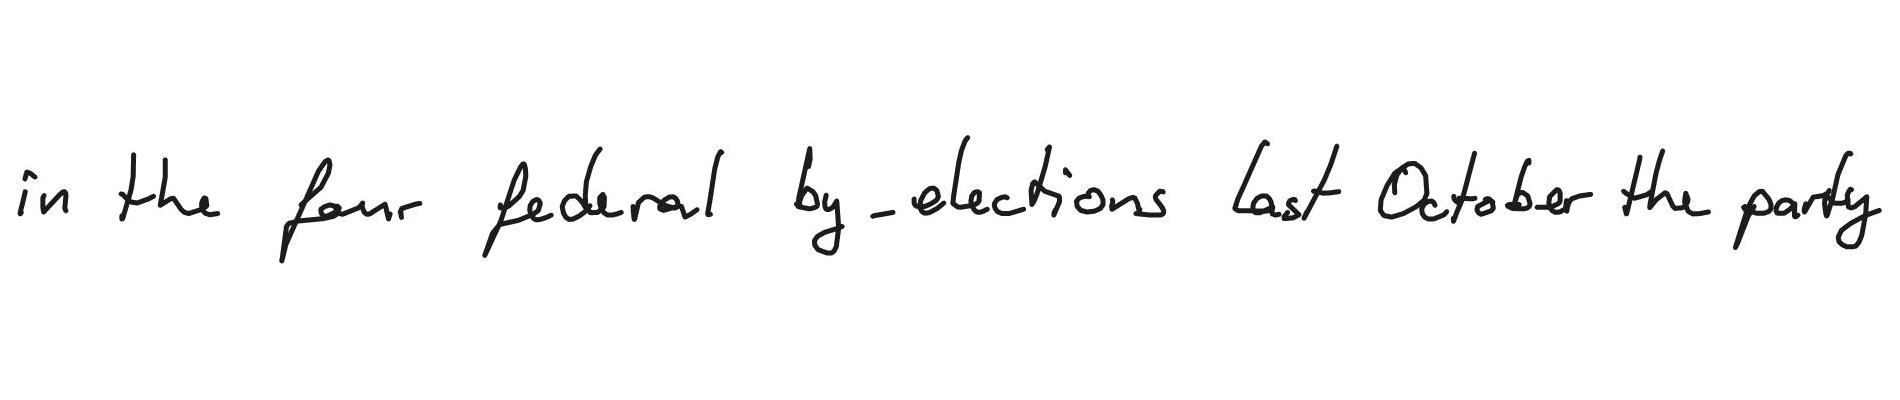 in the four federal by-elections last October the party